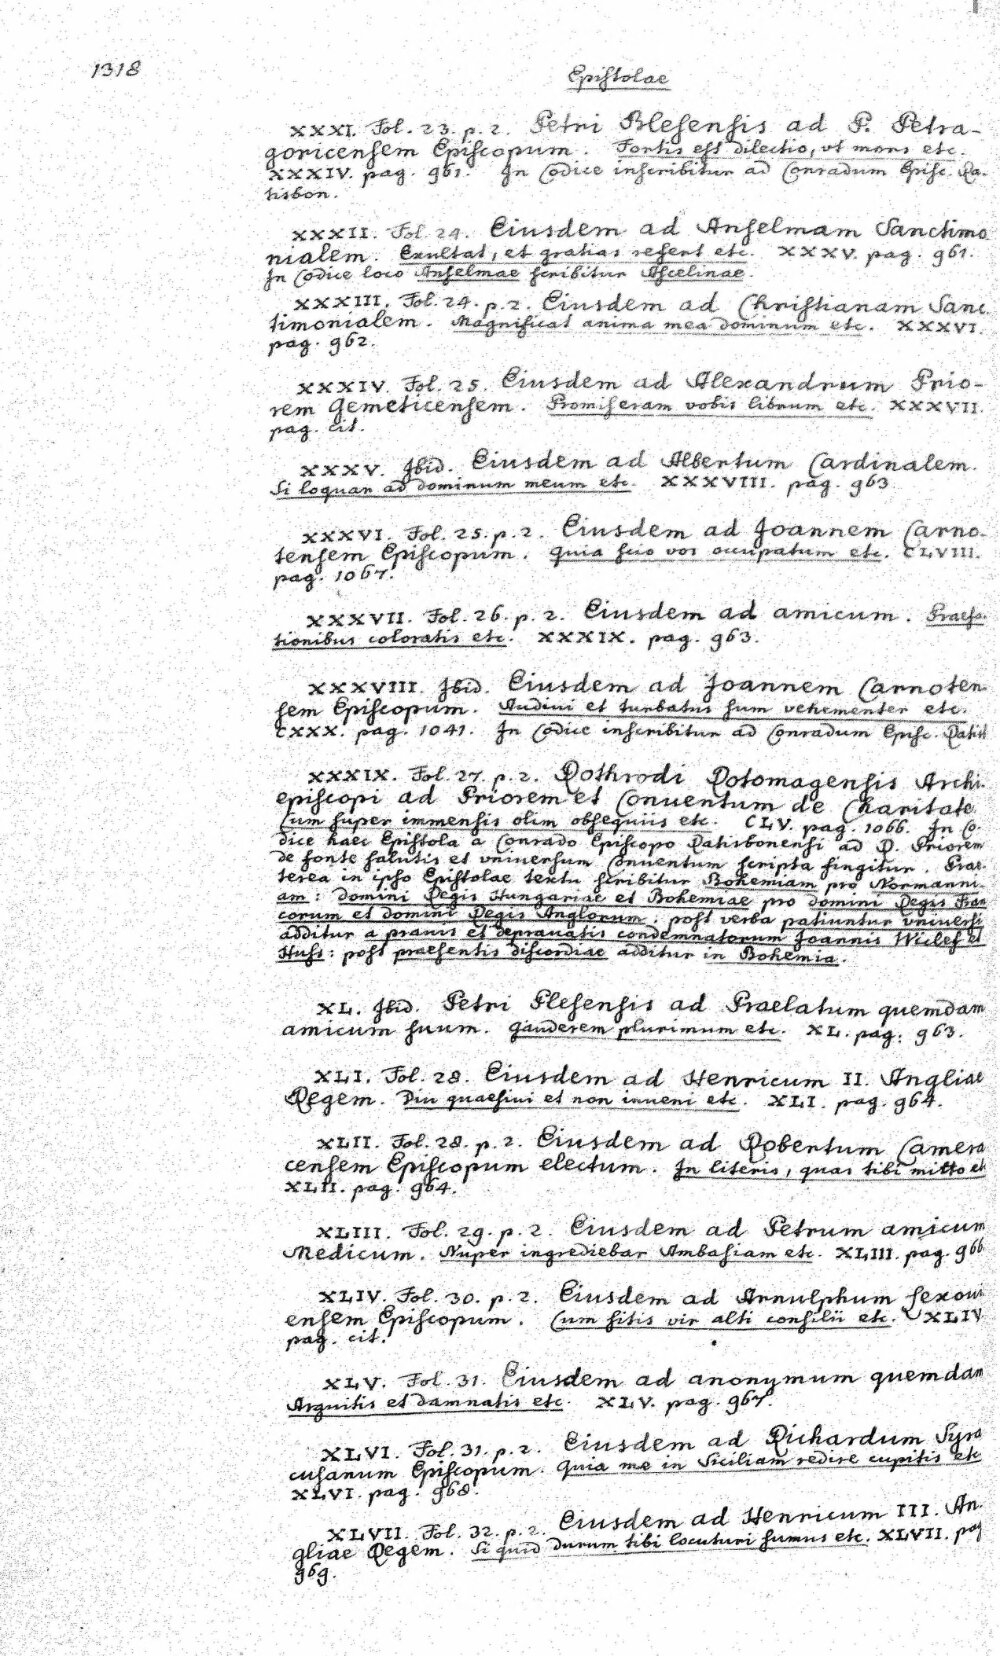 1318
Epistolae
XXXI. Fol. 23. p. 2. Petri Blesensis ad P. Petra-
goricensem Episcopum. Fortis est dilectio, vt mors etc.
XXXIV. pag. 961. In Codice inscribitur ad Conradum Episc. Ra-
tisbon.
XXXII. Fol. 24. Eiusdem ad Anselmam Sanctimo
nialem. Exultat, et gratias refert etc. XXXV. pag. 961.
In Codice loco Anselmae scribitur Ascelinae.
XXXIII. Fol. 24. p. 2. Eiusdem ad Christianam Sanc
timonialem. Magnificat anima mea dominum etc. XXXVI.
pag. 962.
XXXIV. Fol. 25. Eiusdem ad Alexandrum Prio-
rem Gemeticensem. Promiseram vobis librum etc. XXXVII.
pag. cit.
XXXV. Ibid. Eiusdem ad Albertum Cardinalem.
Si loquar ad dominum meum etc. XXXVIII. pag. 963
XXXVI. Fol. 25. p. 2. Eiusdem ad Joannem Carno-
tensem Episcopum. Quia scio vos occupatum etc. CLVIII.
pag. 1067.
XXXVII. Fol. 26. p. 2. Eiusdem ad amicum. Praefa-
tionibus coloratis etc. XXXIX. pag. 963.
XXXVIII. Ibid. Eiusdem ad Joannem Carnoten
sem Episcopum. Audiui et turbatus sum vehementer etc.
CXXX. pag. 1041. In Codice inscribitur ad Conradum Episc. Ratisb
XXXIX. Fol. 27. p. 2. Rothrodi Rotomagensis Archi-
episcopi ad Priorem et Conuentum de Charitate
Cum super immensis olim obsequiis etc. CLV. pag. 1066. In Co-
dice haec Epistola a Conrado Episcopo Ratisbonensi ad D. Priorem
de fonte salutis et vniuersum Conuentum scripta fingitur. Prae-
terea in ipso Epistolae textu scribitur Bohemiam pro Normanni-
am: domini Regis Hungariae et Bohemiae pro domini Regis Fran
corum et domini Regis Anglorum: post verba patiuntur vniuersi
additur a prauis et deprauatis condemnatorum Joannis Wiclef et
Huss: post praesentis discordiae additur in Bohemia.
XL. Ibid. Petri Blesensis ad Praelatum quemdam
amicum suum. Gauderem plurimum etc. XL. pag. 963.
XLI. Fol. 28. Eiusdem ad Henricum II. Angliae
Regem. Diu quaesiui et non inueni etc. XLI. pag. 964.
XLII. Fol. 28. p. 2. Eiusdem ad Robertum Camera
censem Episcopum electum. In literis, quas tibi mitto et
XLII. pag. 964.
XLIII. Fol. 29. p. 2. Eiusdem ad Petrum amicum
Medicum. Nuper ingrediebar Ambasiam etc. XLIII. pag. 966
XLIV. Fol. 30. p. 2. Eiusdem ad Arnulphum Lexoui
ensem Episcopum. Cum sitis vir alti consilii etc. XLIV
pag. cit.
XLV. Fol. 31. Eiusdem ad anonymum quemdam
Arguitis et damnatis etc. XLV. pag. 967.
XLVI. Fol. 31. p. 2. Eiusdem ad Richardum Syra
cusanum Episcopum. Quia me in Siciliam redire cupitis etc
XLVI. pag. 968.
XLVII. Fol. 32. p. 2. Eiusdem ad Henricum III. An
gliae Regem. Si quid durum tibi locuturi sumus etc. XLVII. pag
969.